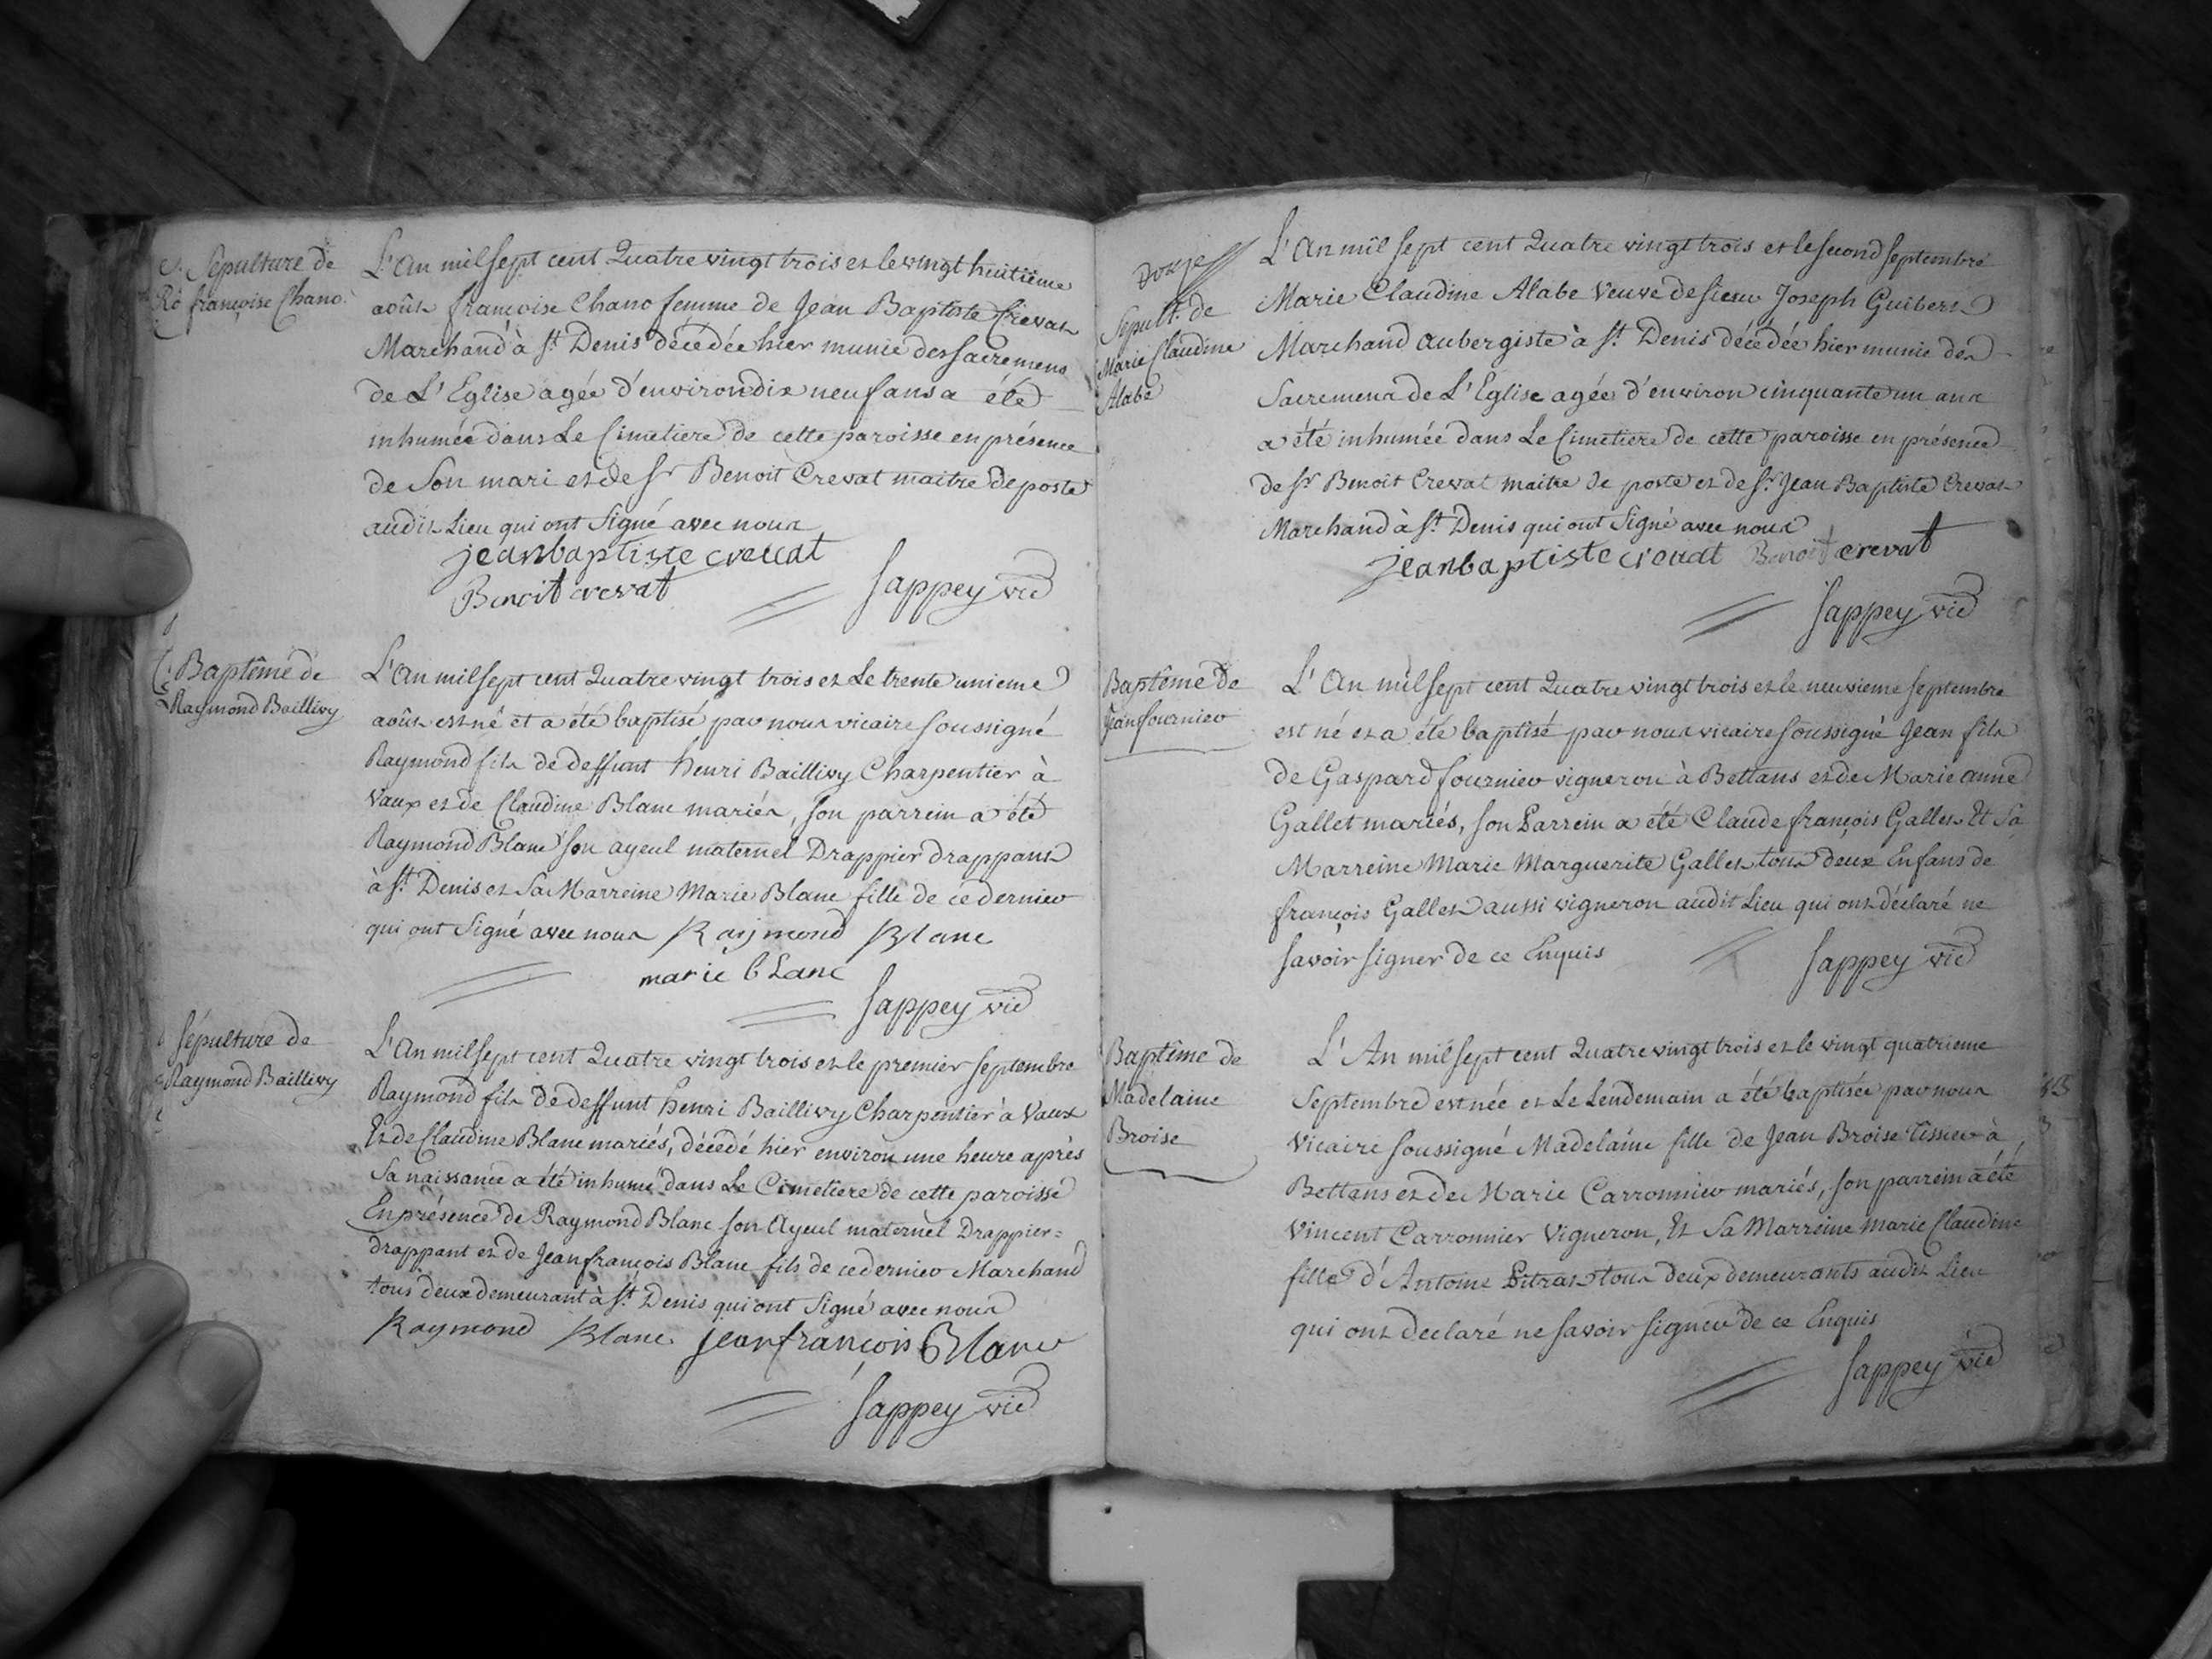 Sépulture de
françoise Chano
L'An mil sept cent Quatre vingt trois et le vingt huitième
août françoise Chano femme de Jean Baptiste Crevat
Marchand à St Denis décédée hier munie des sacremens
de L'Eglise agée d'environ dix neuf ans a été
inhumée dans Le Cimetiere de cette paroisse en présence
de Son mari et de Sr Benoit Crevat maitre de poste
audit Lieu qui ont Signé avec nous
jeanbaptiste crevat
Benoit crevat Sappey vic
Baptême de
Raymond Baillivy
L'An mil sept cent Quatre vingt trois et Le trente unieme
août est né et a été baptisé par nous vicaire soussigné
Raymond fils de deffunt henri Baillivy Charpentier à
Vaux et de Claudine Blanc mariés, son parrein a été
Raymond Blanc son ayeul maternel Drappier drappant
à St Denis et Sa Marreine Marie Blanc fille de ce dernier
qui ont Signé avec nous Raymond Blanc
marie blanc
Sappey vic
Sépulture de
Raymond Baillivy
L'An mil sept cent Quatre vingt trois et le premier septembre
Raymond fils de deffunt henri Baillivy Charpentier à Vaux
Et de Claudine Blanc mariés, décédé hier environ une heure après
Sa naissance a été inhumé dans Le Cimetiere de cette paroisse
En présence de Raymond Blanc son Ayeul maternel Drappier=
drappant et de Jean françois Blanc fils de ce dernier Marchand
tous deux demeurant à St Denis qui ont Signé avec nous
Raymond Blanc jean françois Blanc
Sappey vic
douze
Sepult. de
Marie Claudine
Alabe
L'An mil sept cent Quatre vingt trois et le second septembre
Marie Claudine Alabe Veuve de sieur Joseph Guibert
Marchand aubergiste à St Denis décédée hier munie des
Sacremens de L'Eglise agée d'environ cinquante un ans
a été inhumée dans Le Cimetiere de cette paroisse en présence
de Sr Benoit Crevat maitre de poste et de Sr Jean Baptiste Crevat
Marchand à St Denis qui ont Signé avec nous
jeanbaptiste crevat Benoit crevat
Sappey vic
Baptême de
Jean fournier
L'An mil sept cent Quatre vingt trois et le neuvieme septembre
est né et a été baptisé par nous vicaire soussigné Jean fils
de Gaspard fournier vigneron à Bettans et de Marie anne
Gallet mariés, son Parrein a été Claude françois Gallet Et Sa
Marreine Marie Marguerite Gallet tous deux Enfans de
françois Gallet aussi vigneron audit Lieu qui ont déclaré ne
savoir signer de ce Enquis Sappey vic
Baptême de
Madelaine
Broise
L'An mil sept cent Quatre vingt trois et le vingt quatrieme
Septembre est née et Le Lendemain a été baptisée par nous
Vicaire soussigné Madelaine fille de Jean Broise Tissier à
Bettans et de Marie Carronnier mariés, son parrein a été
Vincent Carronnier Vigneron, Et Sa Marreine Marie Claudine
fille d'Antoine Pitrat tous deux demeurants audit Lieu
qui ont declaré ne savoir signer de ce Enquis
Sappey vic